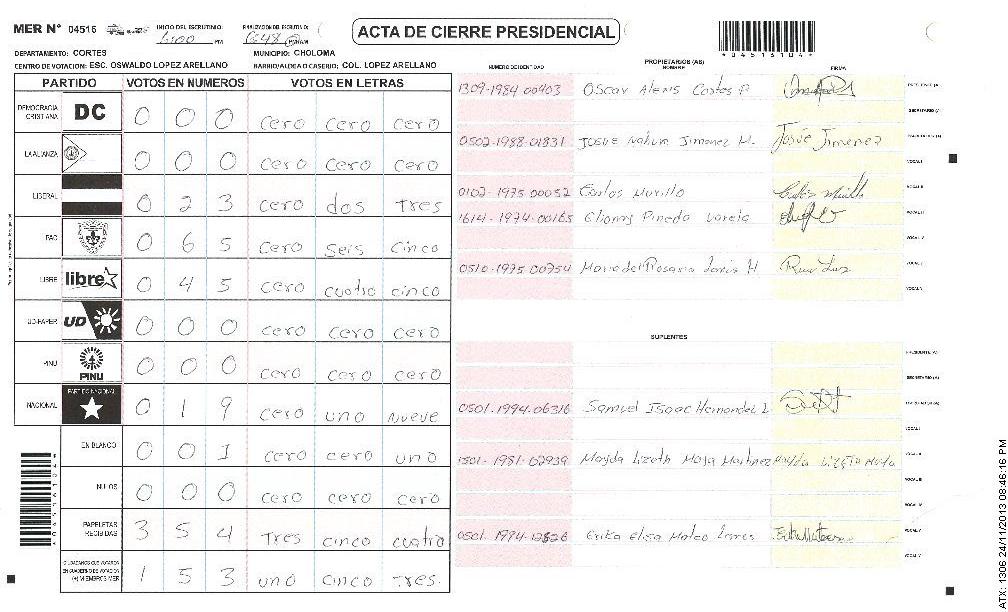 MER N° 04516 INICIO DEL ESCRUTINIO: FINALIZACION DEL ESCRUTINIO:
ACTA DE CIERRE PRESIDENCIAL
*04516104*
DEPARTAMENTO: CORTES MUNICIPIO: CHOLOMA
CENTRO DE VOTACION: ESC. OSWALDO LOPEZ ARELLANO BARRIO/ALDEA O CASERIO: COL. LOPEZ ARELLANO
PARTIDO VOTOS EN NUMEROS VOTOS EN LETRAS
DEMOCRACIA CRISTIANA DC 0 0 0 cero cero cero
LA ALIANZA 0 0 0 cero cero cero
LIBERAL 0 2 3 cero dos Tres
PAC 0 6 5 cero Seis cinco
LIBRE libre 0 4 5 cero cuatro cinco
UD-FAPER UD 0 0 0 cero cero cero
PINU PINU 0 0 0 cero cero cero
NACIONAL PARTIDO NACIONAL 0 1 9 cero uno nueve
EN BLANCO 0 0 1 cero cero uno
NULOS 0 0 0 cero cero cero
PAPELETAS RECIBIDAS 3 5 4 Tres cinco cuatro
CIUDADANOS QUE VOTARON EN CUADERNO DE VOTACION (+) MIEMBROS MER 1 5 3 uno cinco Tres.
PROPIETARIOS (AS)
NUMERO DE IDENTIDAD NOMBRE FIRMA
1309-1984-00403 Oscar Alexis PRESIDENTE (A)
SECRETARIO (A)
0502-1988-01831 Josue Nahum Jimenez M. Josue Jimenez
VOCAL I
0102-1975-00052 Carlos Murillo VOCAL II
1614-1974-00165 Pineda Varela VOCAL III
VOCAL IV
0510-1975-00754 Maria del Rosario
SUPLENTES
PRESIDENTE (A)
SECRETARIO (A)
0501-1994-06316 Samuel Isaac Hernandez
VOCAL I
1501-1981-02939 Mayda Lizeth Maya Martinez Mayda Lizeth Maya VOCAL II
VOCAL III
VOCAL IV
Erika Elisa Mateo VOCAL V
ATX: 1306 24/11/2013 08:46:16 PM